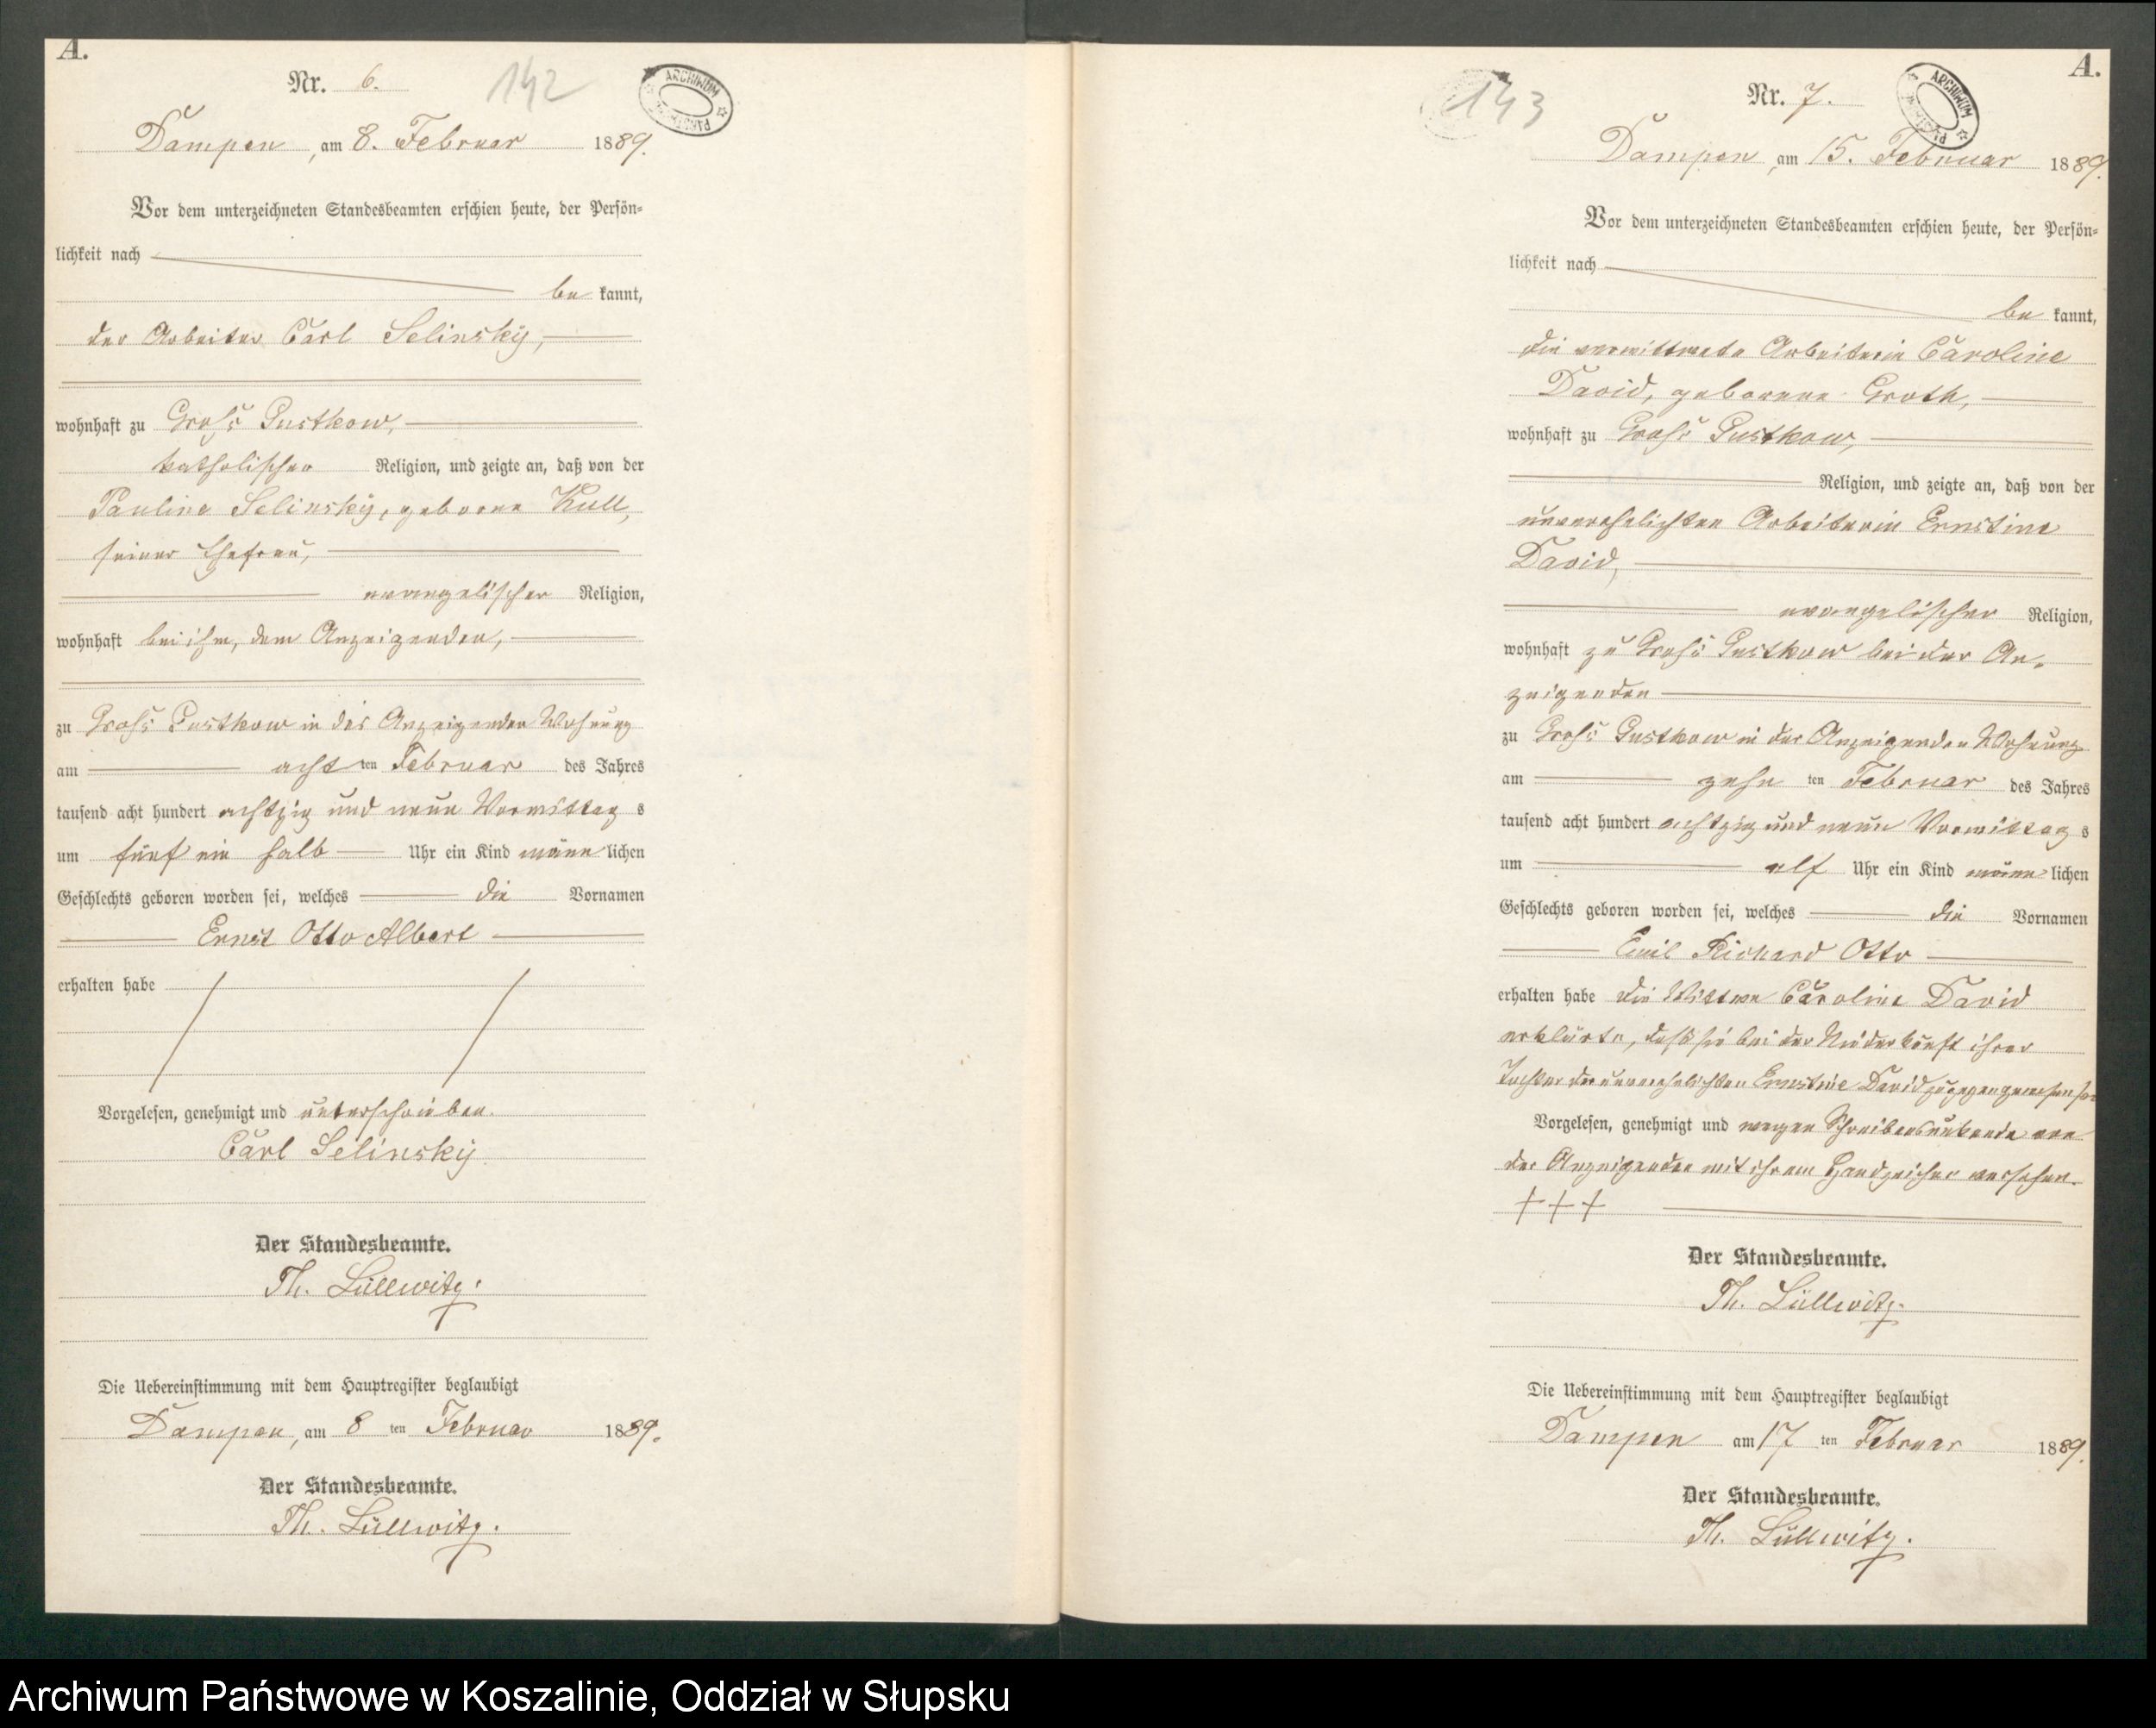 A.
Nr. 6.
142
ARCHIWUM
Dampen, am 8. Februar 1889.
Vor dem unterzeichneten Standesbeamten erschien heute, der Persön=
lichkeit nach
be kannt,
der Arbeiter Carl Selinsky,
wohnhaft zu Groß Pustkow,
katholischer Religion, und zeigte an, daß von der
Pauline Selinsky, geborne Kull,
seiner Ehefrau,
evangelischer Religion,
wohnhaft bei ihm, dem Anzeigenden,
zu Groß Pustkow in des Anzeigenden Wohnung
am acht ten Februar des Jahres
tausend acht hundert achtzig und neun Vormittag s
um fünf ein halb Uhr ein Kind männ lichen
Geschlechts geboren worden sei, welches die Vornamen
Ernst Otto Albert
erhalten habe
Vorgelesen, genehmigt und unterschrieben.
Carl Selinsky
Der Standesbeamte.
Th. Lüllwitz.
Die Uebereinstimmung mit dem Hauptregister beglaubigt
Dampen, am 8 ten Februar 1889.
Der Standesbeamte.
Th. Lüllwitz.
A.
143
Nr. 7.
ARCHIWUM
Dampen, am 15. Februar 1889.
Vor dem unterzeichneten Standesbeamten erschien heute, der Persön=
lichkeit nach
be kannt,
die verwittwete Arbeiterin Caroline
David, geborene Groth,
wohnhaft zu Groß Pustkow,
Religion, und zeigte an, daß von der
unverehelichten Arbeiterin Ernstine
David,
evangelischer Religion,
wohnhaft zu Groß Pustkow bei der An=
zeigenden
zu Groß Pustkow in der Anzeigenden Wohnung
am zehn ten Februar des Jahres
tausend acht hundert achtzig und neun Vormittag s
um elf Uhr ein Kind männ lichen
Geschlechts geboren worden sei, welches die Vornamen
Emil Richard Otto
erhalten habe die Wittwe Caroline David
erklärte, daß sie bei der Niederkunft ihrer
Tochter der unverehelichten Ernstine David zugegen gewesen sei
Vorgelesen, genehmigt und wegen Schreibensunkunde von
der Anzeigenden mit ihrem Handzeichen versehen.
+++
Der Standesbeamte.
Th. Lüllwitz.
Die Uebereinstimmung mit dem Hauptregister beglaubigt
Dampen am 17 ten Februar 1889.
Der Standesbeamte.
Th. Lüllwitz.
Archiwum Państwowe w Koszalinie, Oddział w Słupsku